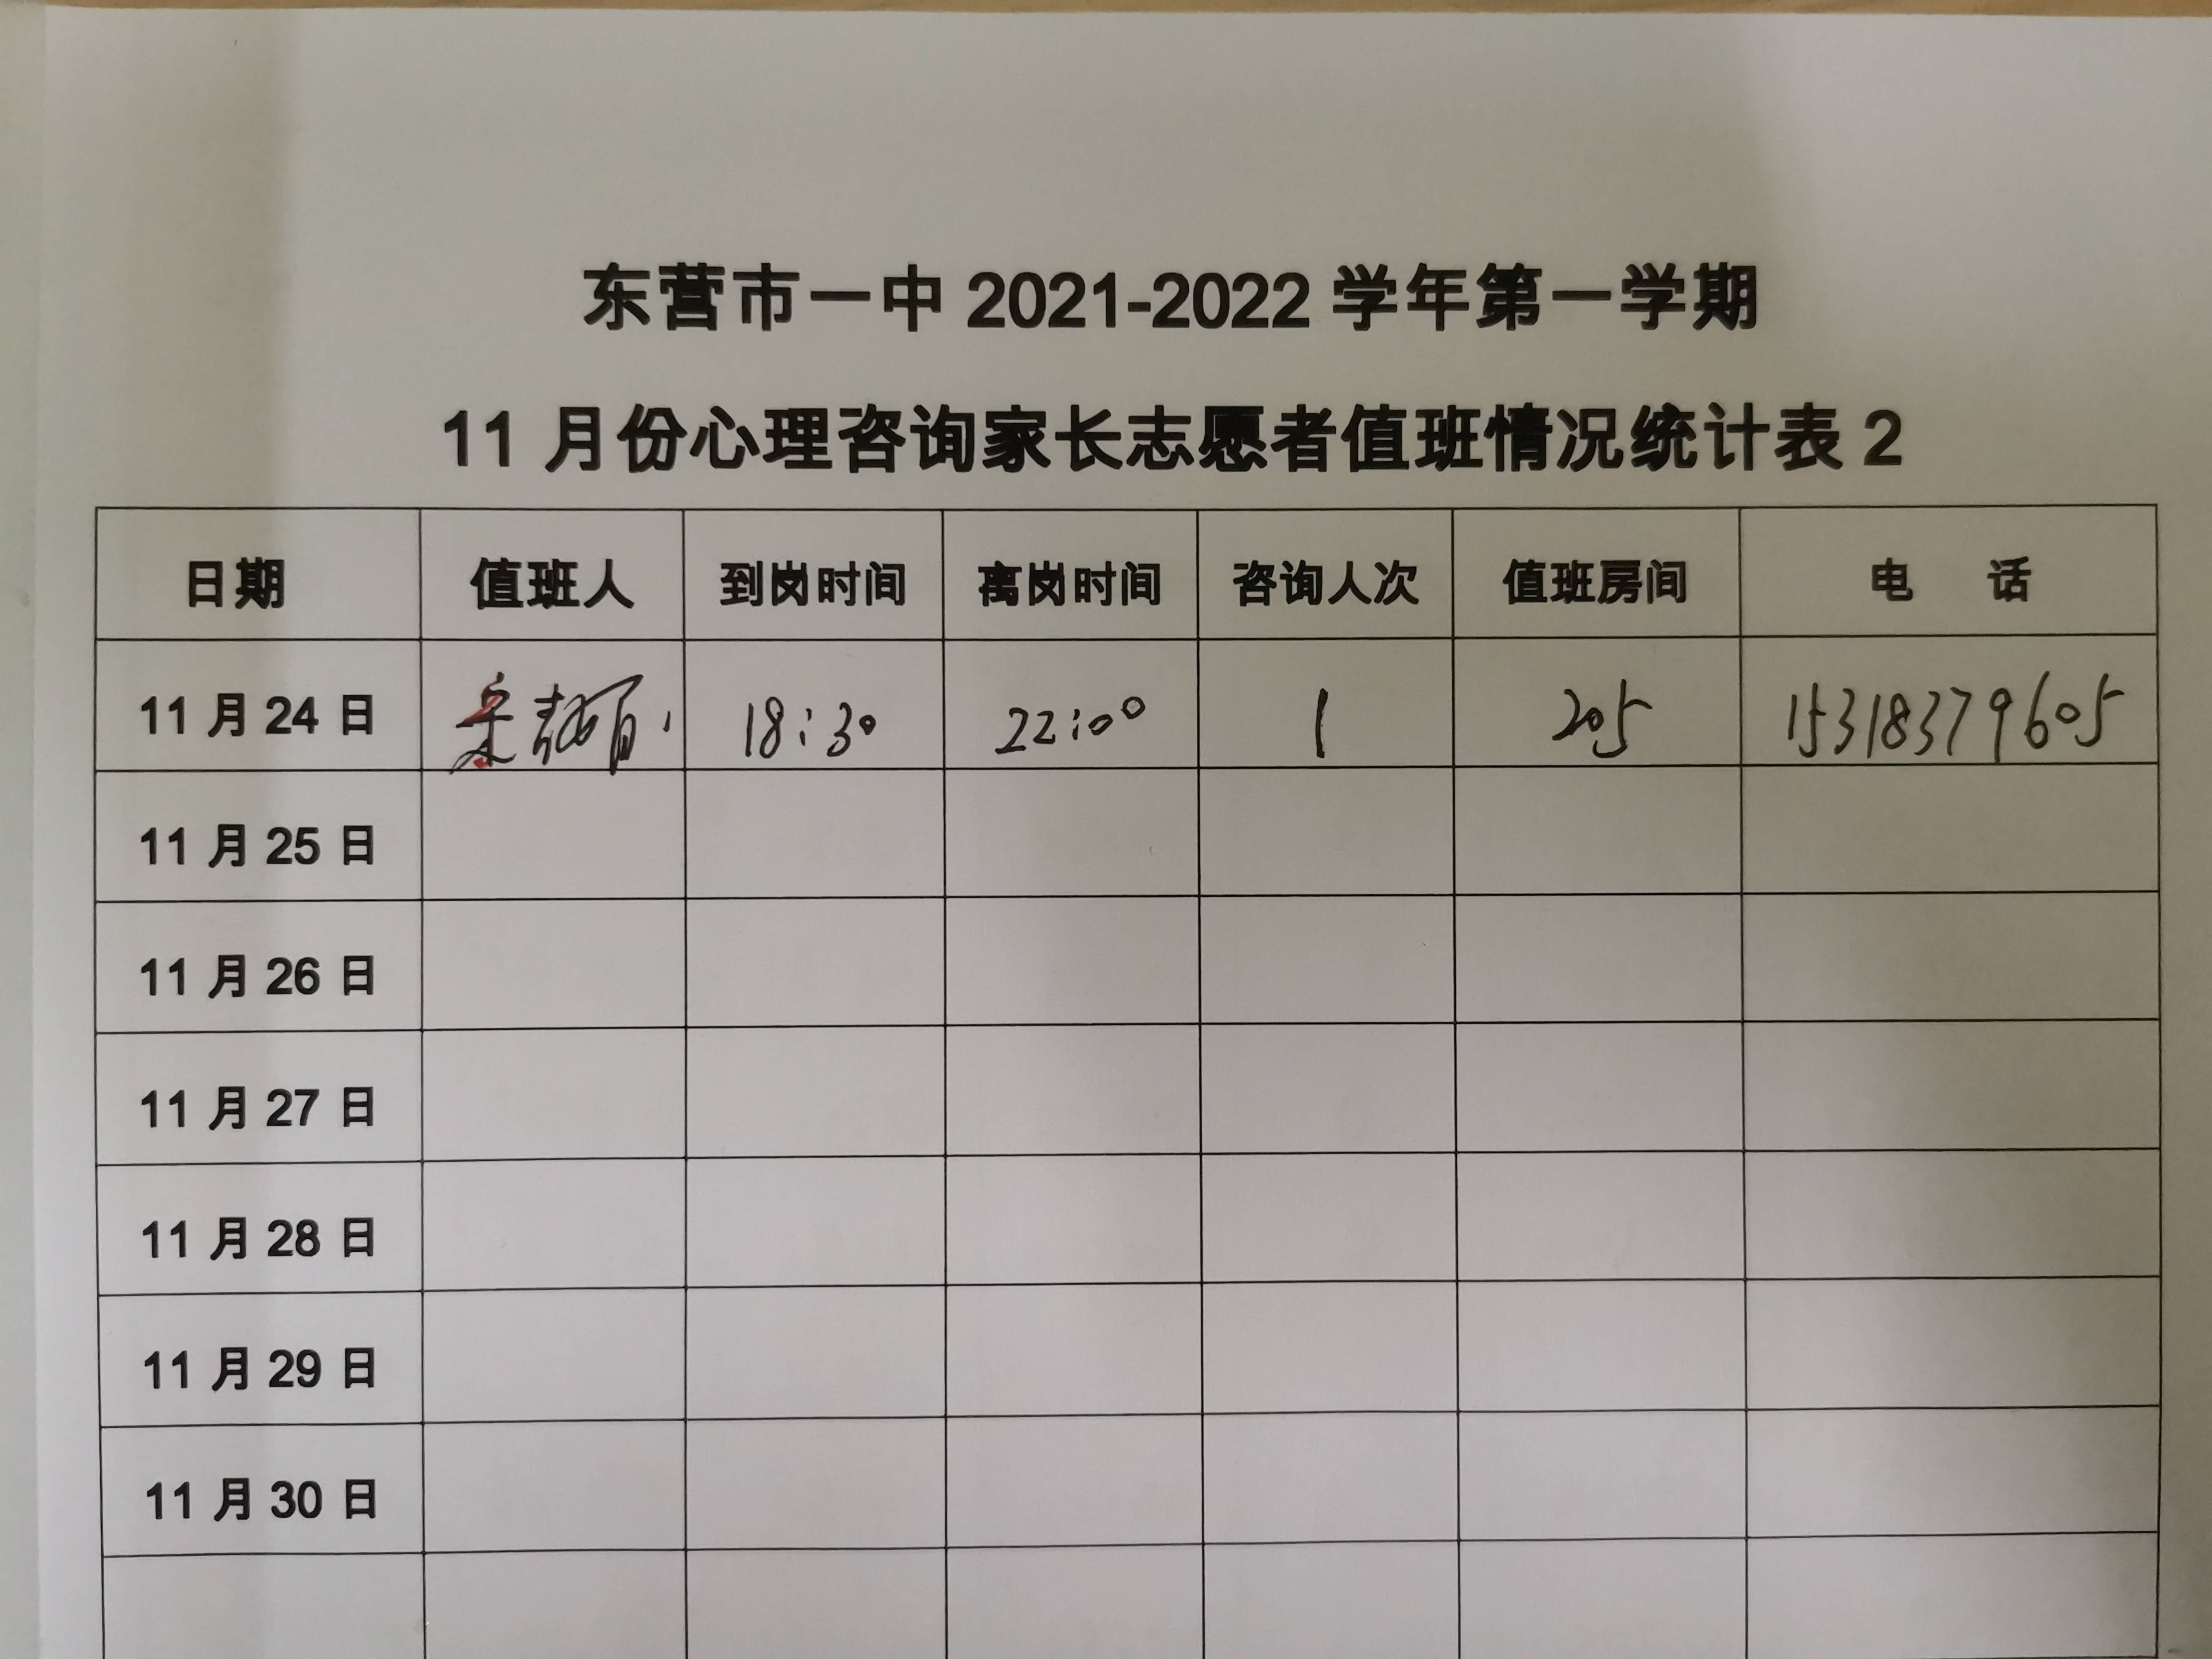 东营市一中 2021-2022 学年第一学期
11 月份心理咨询家长志愿者值班情况统计表 2
日期 值班人 到岗时间 离岗时间 咨询人次 值班房间 电 话
11 月 24 日 18:30 22:00 1 205 15318379605
11 月 25 日
11 月 26 日
11 月 27 日
11 月 28 日
11 月 29 日
11 月 30 日